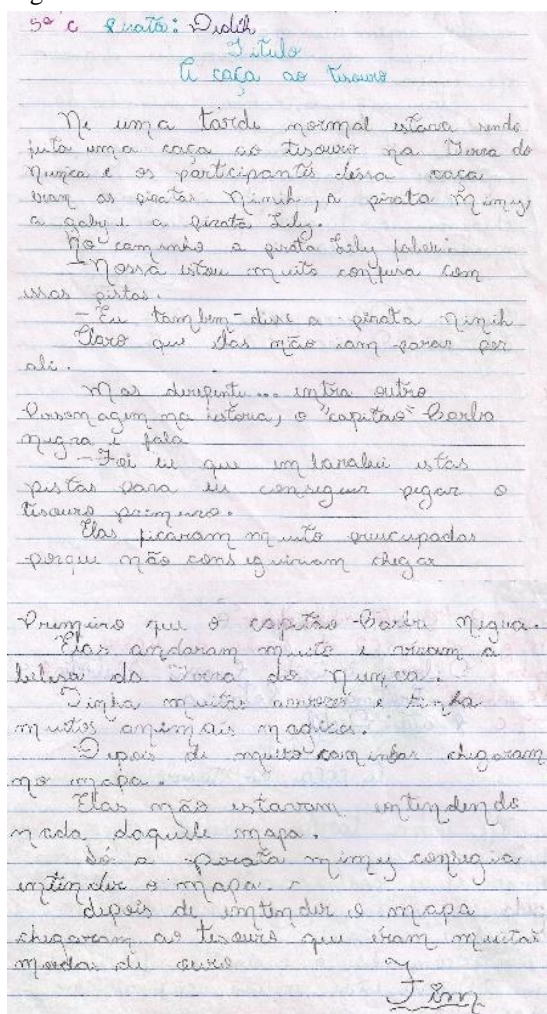 5ª c Pirata: Didih
Titulo
A caça ao tesouro
Ne uma tarde normal estava sendo
feita uma caça ao tisouro na Terra do
Nunca e os participantes dessa caca
eram as piratas Ninih, a pirata Mimy,
a gaby e a pirata Lily.
No caminho a pirata Lely falou:
-Nossa estou muito confusa com
essas pistas.
-Eu tambem-disse a pirata Ninih
Claro que elas não iam parar por
ali.
Mas derepente... entra outro
Personagem na istoria, o "capitão" Barba
negra e fala
-Foi eu que embaralhei estas
pistas para eu conseguir pegar o
tisouro primeiro.
Elas ficaram muito preucupadas
porque não conseguiriam chegar
Primeiro que o capitão Barba Negra.
Elas andaram muito e viram a
beleza da Terra do Nunca.
Tinha muitas arvores e tinha
muitos animais
Depois de muito caminhar chegaram
no mapa.
Elas não estavam entendendo
nada daquele mapa.
Só a pirata mimy consegia
entender o mapa.
depois de entender o mapa
chegaram ao tesouro que eram muitas
moedas de ouro
Fim